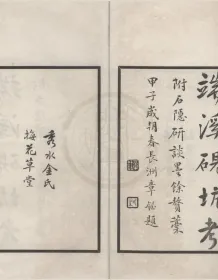 端溪硯坑考
附石隱研談墨餘贅藁
甲子歲朝春長洲章鈺題
秀水金氏
梅花草堂